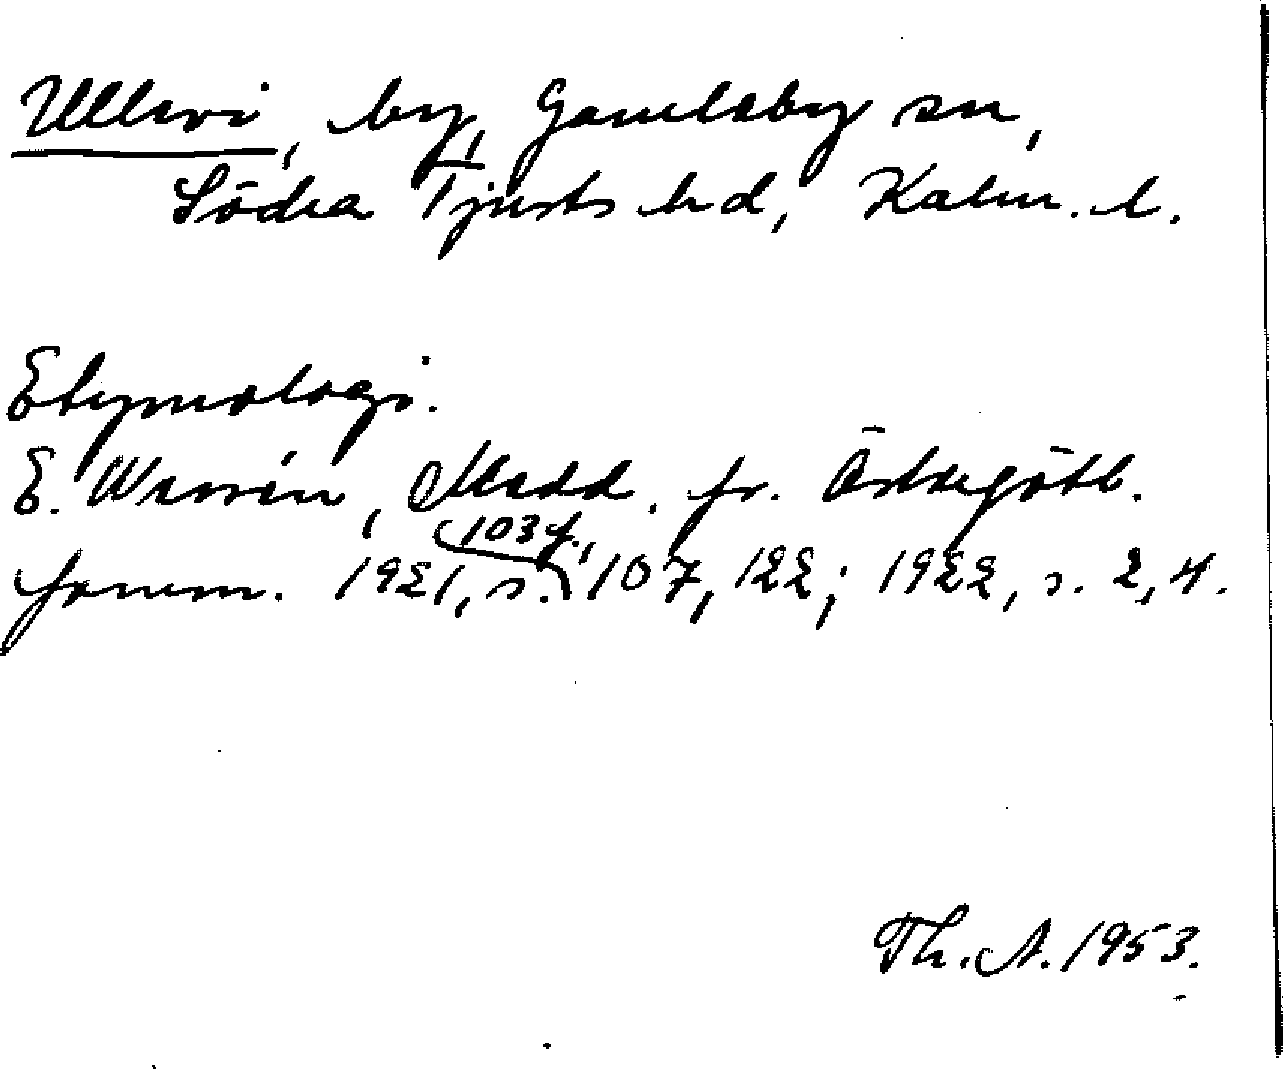 Ullevi, by, Gamleby sn,
Södra Tjusts hd, Kalm. l.
Etymologi.
E. Wessén, Medd. fr. Östergötl.
fornm. 1921, s. 103 f., 107, 122; 1922, s. 2, 4.
Th. A. 1953.